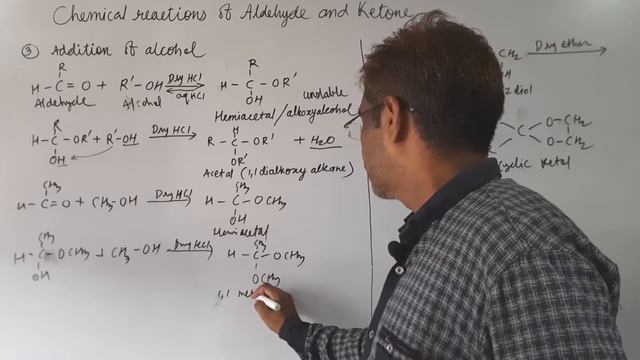 Chemical reactions of Aldehyde and Ketone
③ Addition of alcohol
R
H - C = O + R' - OH Dry HCl H - C - OR'
aq HCl
OH
unstable
Aldehyde Alcohol
Hemiacetal / alkoxyalcohol
R
H - C - OR' + R' - OH Dry HCl R - C - OR' + H₂O
OH
H
OR'
Acetal (1,1 dialkoxy alkane)
CH₃
H - C = O + CH₃ - OH Dry HCl H - C - OCH₃
CH₃
OH
Hemiacetal
CH₃
H - C - OCH₃ + CH₃ - OH Dry HCl H - C - OCH₃
OH
CH₃
OCH₃
1,1 met
CH₂ Dry ether
H
diol
C
O - CH₂
O - CH₂
cyclic Ketal